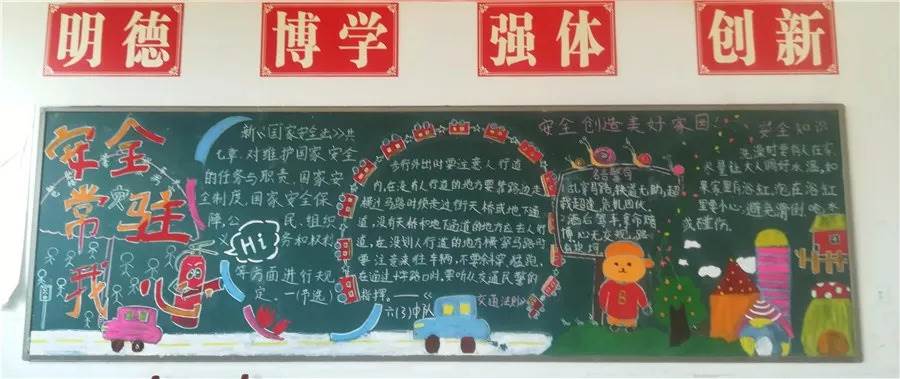 明德
博学
强体
创新
安全
常驻
我
新《国家安全法》共
七章,对维护国家安全
的任务与职责,国家安
全制度,国家安全保
障,公 民、组织
义 务和权利
等方面进行规
定。—(节选)
Hi
步行外出时要注意人行道
内,在没有人行道的地方要靠路边走
横过马路时须走过街天桥或地下通
道,没有天桥和地下通道的地方应走人行
道,在没划人行道的地方横穿马路时
要注意来往车辆,不要斜穿,猛跑,
在通过十字路口时,要听从交通民警的
指挥。——《
交通法则》
六(3)中队
安全创造美好家园
乱穿马路,
我超速,危机四伏
酒后驾车
B
安全知识
洗澡时要有人在家,
尽量让大人调好水温,如
果家里有浴缸,泡在浴缸
里要小心,避免滑倒、呛水
或碰伤。